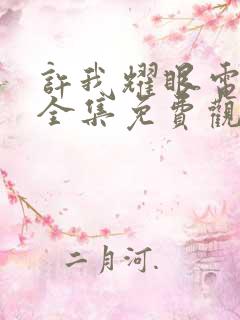 許我耀眼電
全集免費觀
二月河.